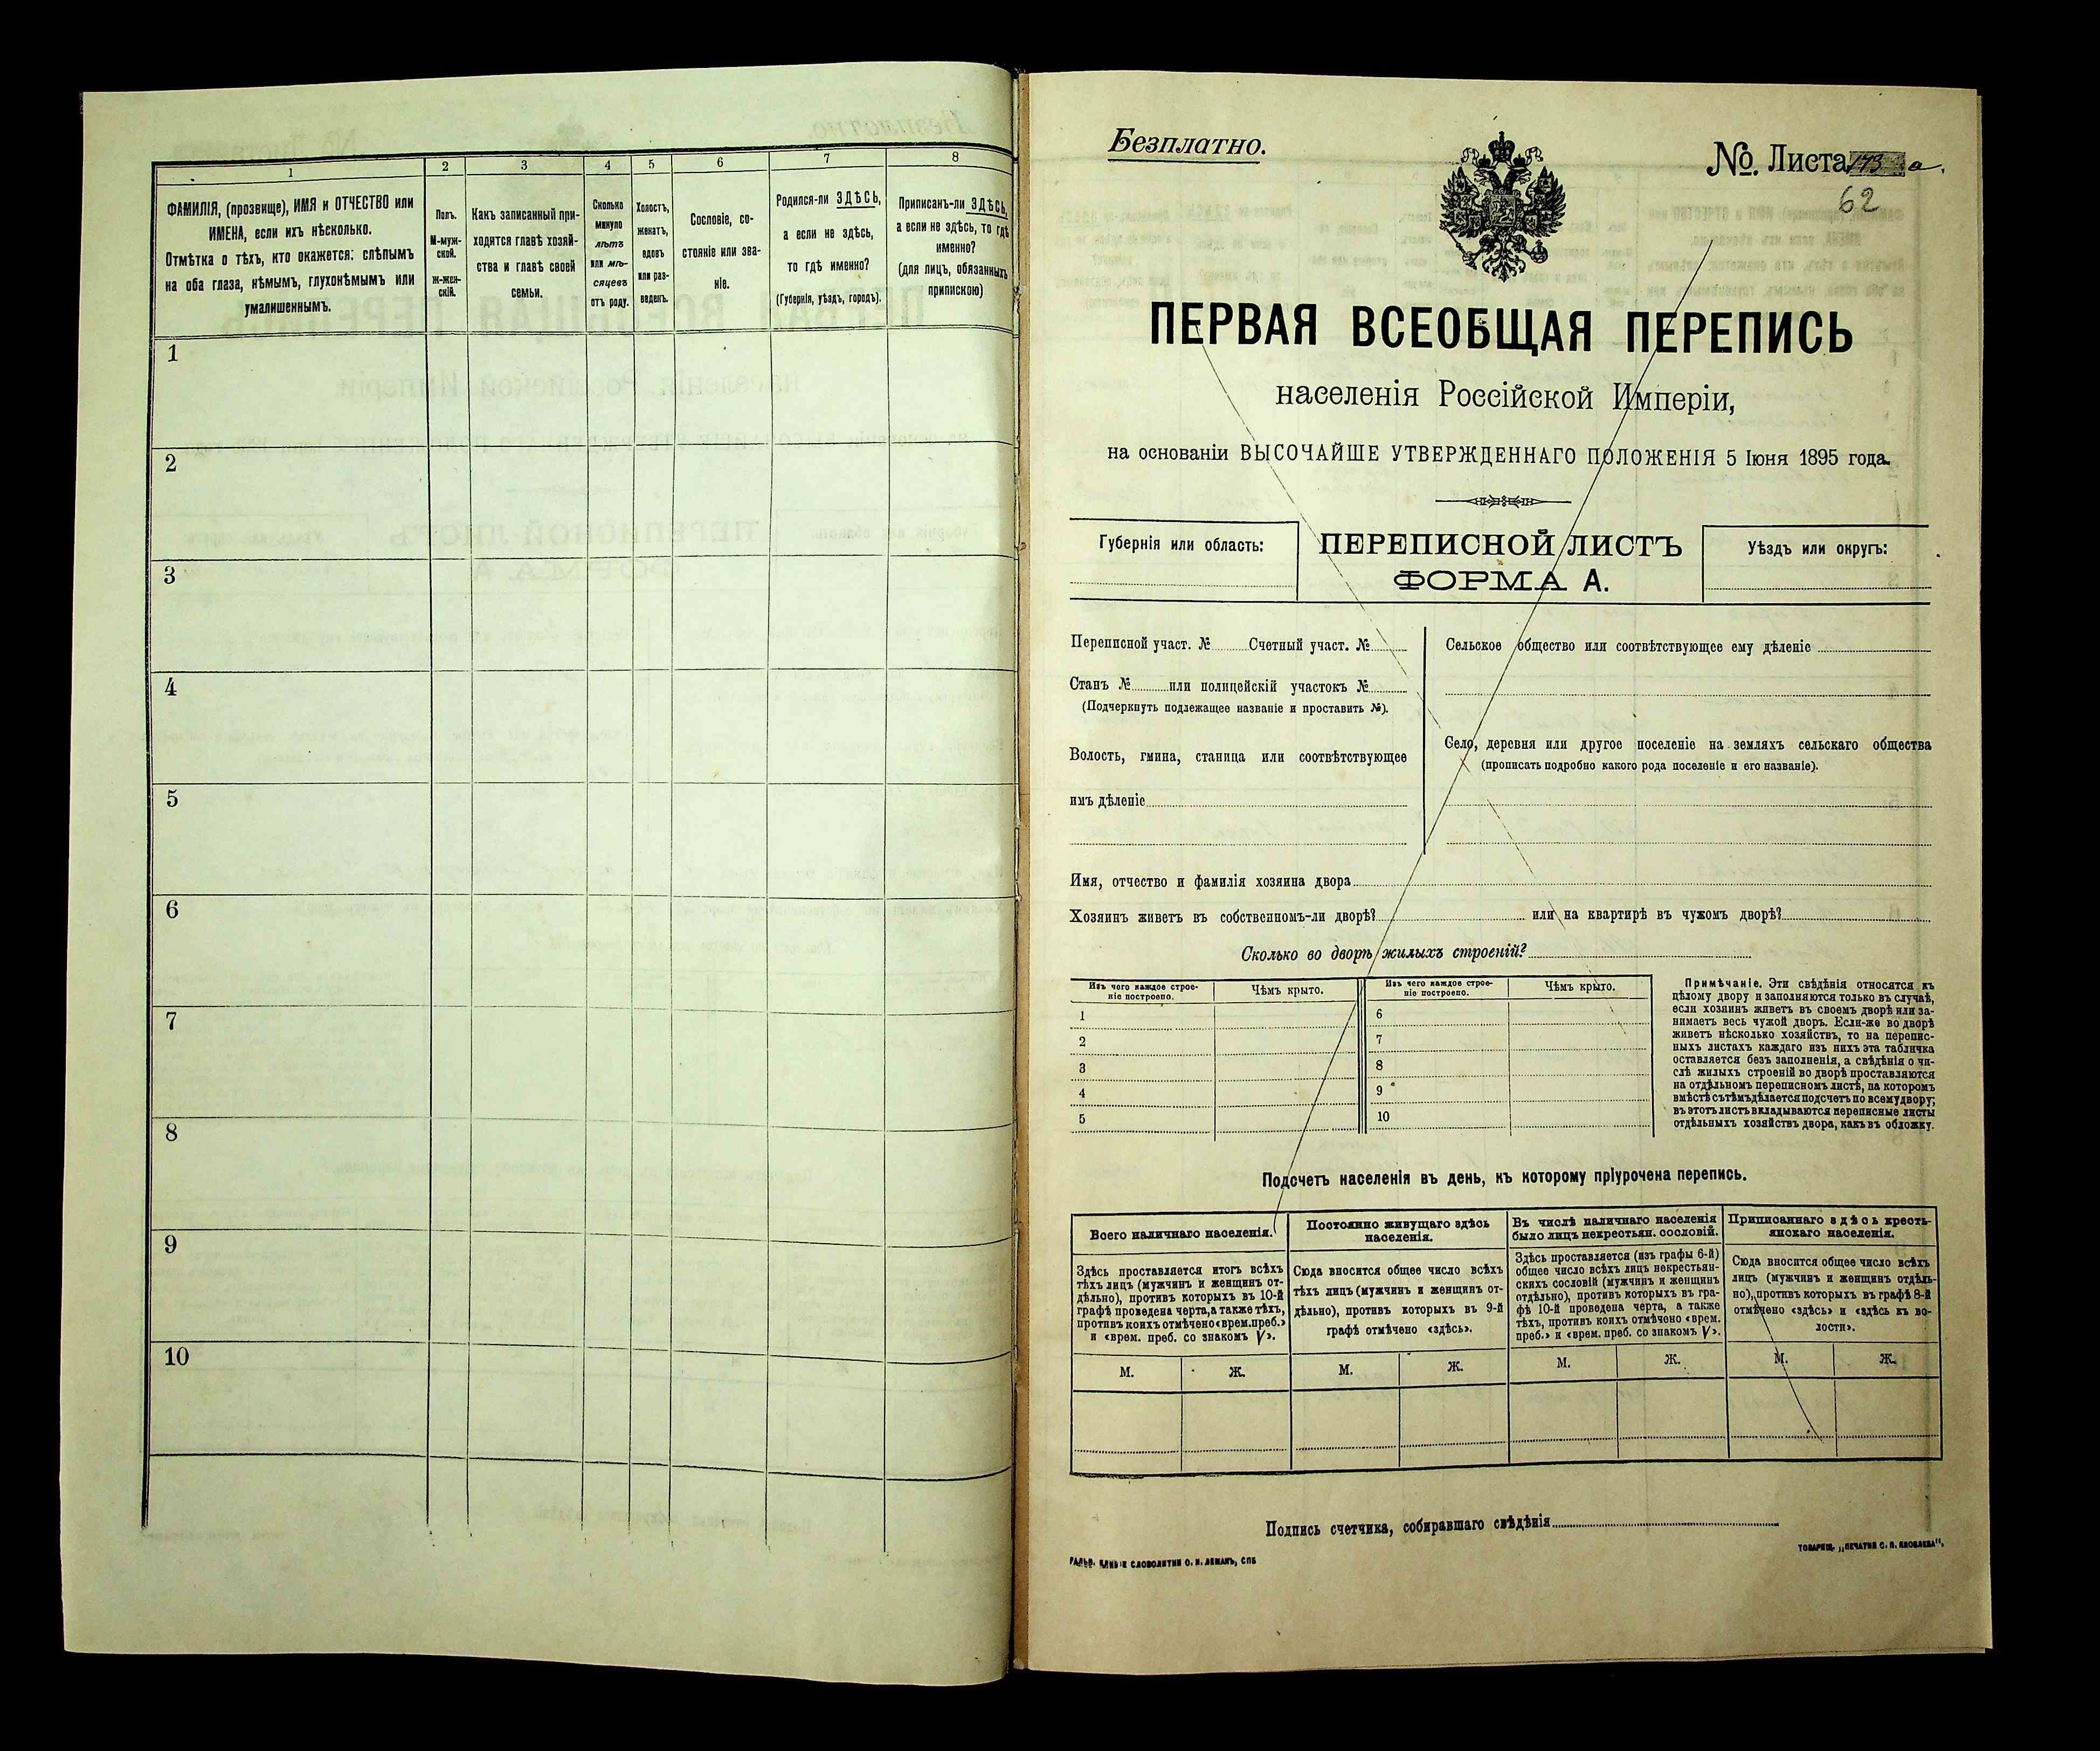 1
2
3
4
5
6
7
8
ФАМИЛІЯ, (прозвище), ИМЯ и ОТЧЕСТВО или
ИМЕНА, если ихъ нѣсколько.
Отмѣтка о тѣхъ, кто окажется: слѣпымъ
на оба глаза, нѣмымъ, глухонѣмымъ или
умалишеннымъ.
Полъ.
М-муж-
ской.
Ж-жен-
скій.
Какъ записанный при-
ходится главѣ хозяй-
ства и главѣ своей
семьи.
Сколько
минуло
лѣтъ
или мѣ-
сяцевъ
отъ роду.
Холостъ,
женатъ,
вдовъ
или раз-
веденъ.
Сословіе, со-
стояніе или зва-
ніе.
Родился-ли ЗДѢСЬ,
а если не здѣсь,
то гдѣ именно?
(Губернія, уѣздъ, городъ).
Приписанъ-ли ЗДѢСЬ,
а если не здѣсь, то гдѣ
именно?
(для лицъ, обязанныхъ
припискою)
1
2
3
4
5
6
7
8
9
10
Безплатно.
№. Листа 173 а.
62
ПЕРВАЯ ВСЕОБЩАЯ ПЕРЕПИСЬ
населенія Россійской Имперіи,
на основаніи ВЫСОЧАЙШЕ УТВЕРЖДЕННАГО ПОЛОЖЕНІЯ 5 Іюня 1895 года.
Губернія или область:
ПЕРЕПИСНОЙ ЛИСТЪ
ФОРМА А.
Уѣздъ или округъ:
Переписной участ. № Счетный участ. №
Станъ № или полицейскій участокъ №
(Подчеркнуть подлежащее названіе и проставить №).
Волость, гмина, станица или соотвѣтствующее
имъ дѣленіе
Сельское общество или соотвѣтствующее ему дѣленіе
Село, деревня или другое поселеніе на земляхъ сельскаго общества
(прописать подробно какого рода поселеніе и его названіе).
Имя, отчество и фамилія хозяина двора
Хозяинъ живетъ въ собственномъ-ли дворѣ? или на квартирѣ въ чужомъ дворѣ?
Сколько во дворѣ жилыхъ строеній?
Изъ чего каждое строе-
ніе построено.
Чѣмъ крыто.
Изъ чего каждое строе-
ніе построено.
Чѣмъ крыто.
1
2
3
4
5
6
7
8
9
10
Примѣчаніе. Эти свѣдѣнія относятся къ
цѣлому двору и заполняются только въ случаѣ,
если хозяинъ живетъ въ своемъ дворѣ или за-
нимаетъ весь чужой дворъ. Если-же во дворѣ
живетъ нѣсколько хозяйствъ, то на перепис-
ныхъ листахъ каждаго изъ нихъ эта табличка
оставляется безъ заполненія, а свѣдѣнія о чи-
слѣ жилыхъ строеній во дворѣ проставляются
на отдѣльномъ переписномъ листѣ, на которомъ
вмѣстѣ съ тѣмъ дѣлается подсчетъ по всему двору;
въ этотъ листъ вкладываются переписные листы
отдѣльныхъ хозяйствъ двора, какъ въ обложку.
Подсчетъ населенія въ день, къ которому пріурочена перепись.
Всего наличнаго населенія.
Постоянно живущаго здѣсь
населенія.
Въ числѣ наличнаго населенія
было лицъ некрестьян. сословій.
Приписаннаго здѣсь кресть-
янскаго населенія.
Здѣсь проставляется итогъ всѣхъ
тѣхъ лицъ (мужчинъ и женщинъ от-
дѣльно), противъ которыхъ въ 10-й
графѣ проведена черта, а также тѣхъ,
противъ коихъ отмѣчено «врем. преб.»
и «врем. преб. со знакомъ V».
Сюда вносится общее число всѣхъ
тѣхъ лицъ (мужчинъ и женщинъ от-
дѣльно), противъ которыхъ въ 9-й
графѣ отмѣчено «здѣсь».
Здѣсь проставляется (изъ графы 6-й)
общее число всѣхъ лицъ некрестьян-
скихъ сословій (мужчинъ и женщинъ
отдѣльно), противъ которыхъ въ гра-
фѣ 10-й проведена черта, а также
тѣхъ, противъ коихъ отмѣчено «врем.
преб.» и «врем. преб. со знакомъ V».
Сюда вносится общее число всѣхъ
лицъ (мужчинъ и женщинъ отдѣль-
но), противъ которыхъ въ графѣ 8-й
отмѣчено «здѣсь» и «здѣсь къ во-
лости».
М. Ж. М. Ж. М. Ж. М. Ж.
Подпись счетчика, собиравшаго свѣдѣнія
СЛОВОЛИТНИ О. И. ЛЕМАНЪ, СПБ
ТОВАРИЩ. „ПЕЧАТНЯ С. П. ЯКОВЛЕВА“.